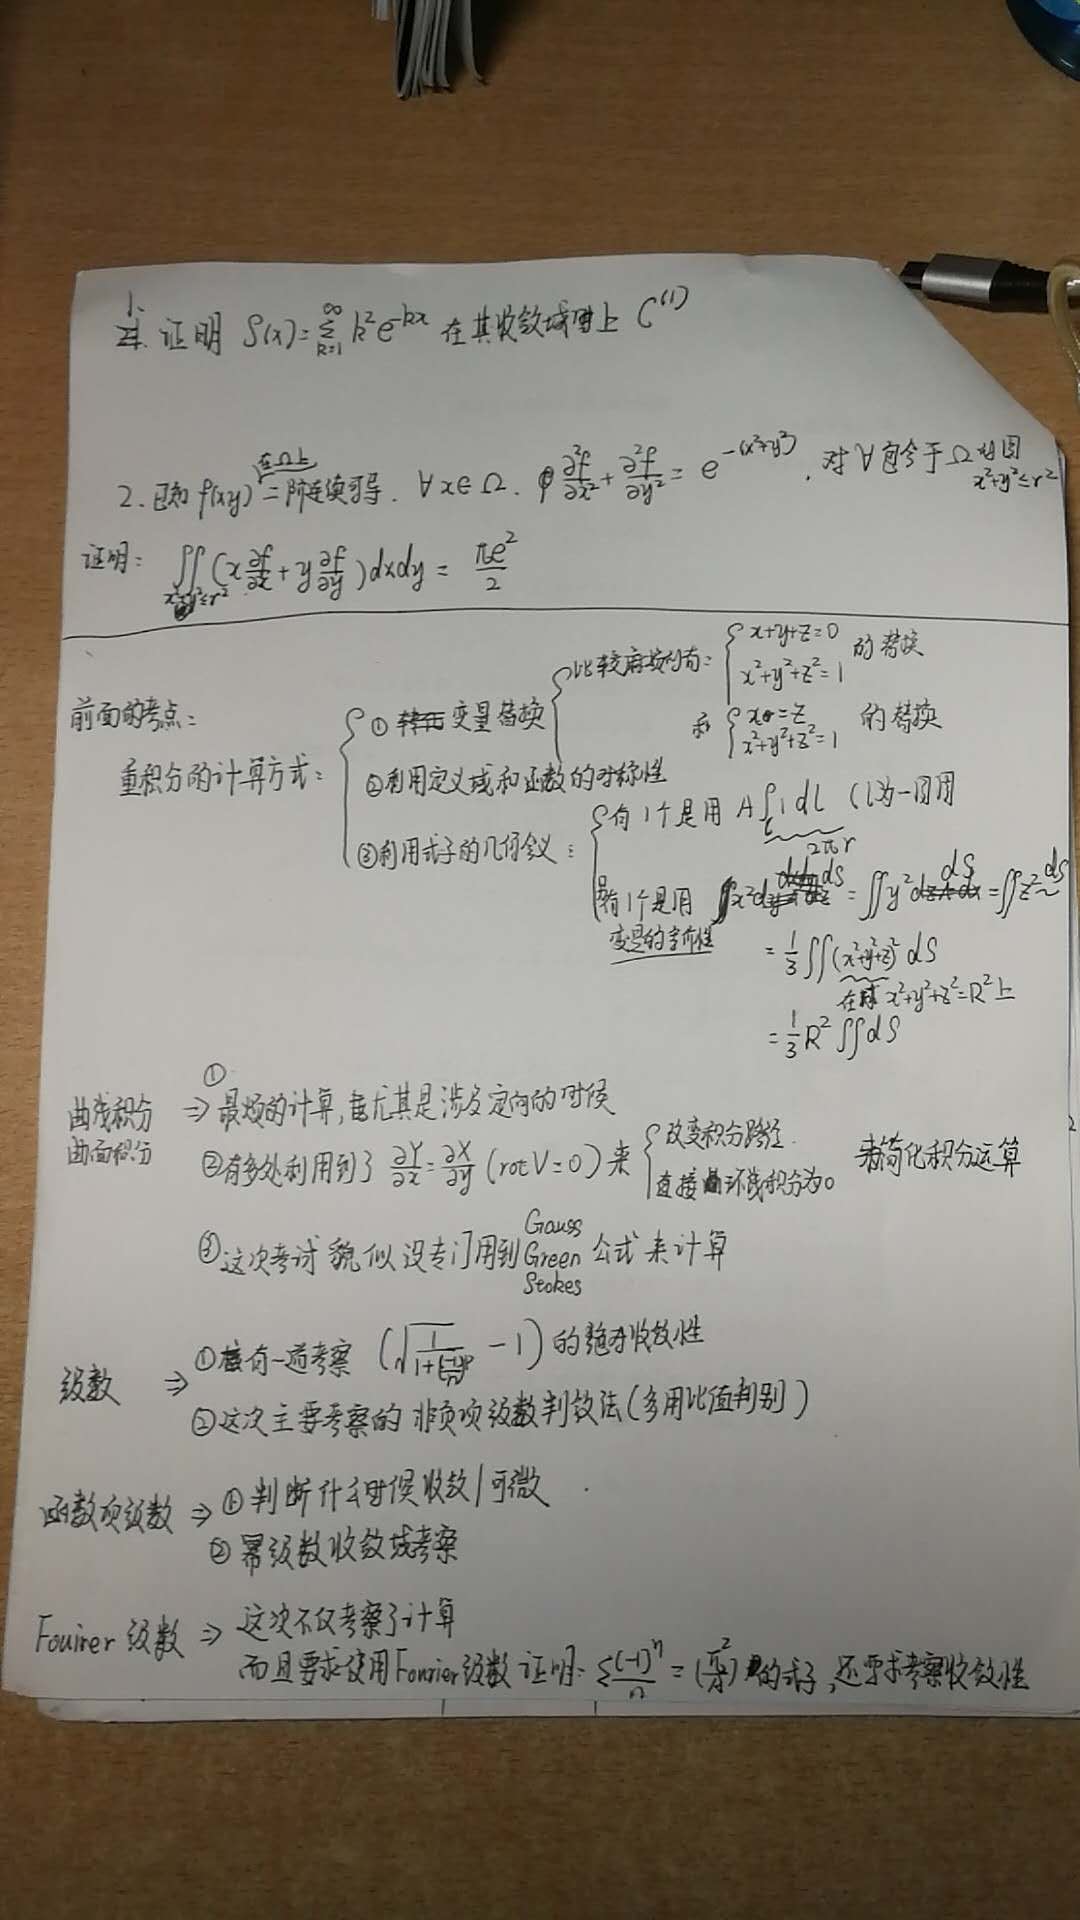 1. 证明 S(x)=∑_{k=1}^{∞} k²e^{-kx} 在其收敛域上 C^{(1)}
2. 已知 f(x,y) 在Ω上 二阶连续可导. ∀x∈Ω. ∂²f/∂x²+∂²f/∂y²=e^{-(x²+y²)}, 对∀包含于Ω的圆 x²+y²≤r²
证明: ∬_{x²+y²≤r²}(x ∂f/∂x+y ∂f/∂y)dxdy= πe²/2
前面的考点:
重积分的计算方式:
① 变量替换
比较麻烦的有: {x+y+z=0 x²+y²+z²=1 的替换
和 {x=z x²+y²+z²=1 的替换
②利用定义域和函数的对称性
③利用式子的几何含义:
有1个是用 A∫_l 1 dl (l为一圆周
2πr
有1个是用 ∬x² dS = ∬y² dS = ∬z² dS
变量的等价性
= 1/3 ∬(x²+y²+z²) dS
在球 x²+y²+z²=R²上
= 1/3 R² ∬dS
曲线积分
曲面积分
⇒ ① 最烦的计算, 尤其是涉及定向的时候
②有多处利用到了 ∂Y/∂x=∂X/∂y (rot V=0) 来 {改变积分路径 直接 环线积分为0 来简化积分运算
③这次考试貌似没专门用到 Gauss Green Stokes 公式来计算
级数 ⇒ ① 有一道考察 的绝对收敛性
②这次主要考察的 非负项级数判敛法(多用比值判别)
函数项级数 ⇒ ①判断什么时候收敛/可微
② 幂级数收敛域考察
Fourier 级数 ⇒ 这次不仅考察了计算
而且要求使用Fourier级数 证明: 的式子, 还要求考察收敛性